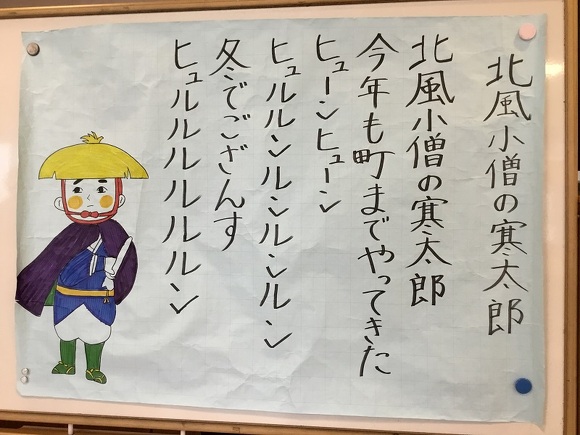 北風小僧の寒太郎
北風小僧の寒太郎
今年も町までやってきた
ヒューンヒューン
ヒュルルンルンルンルン
冬でござんす
ヒュルルルルルルン